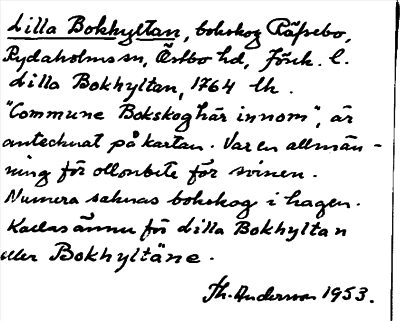 Lilla Bokhyltan, bokskog Räfsebo,
Rydaholms sn, Östbo hd, Jönk. l.
Lilla Bokhyltan, 1764 lh.
"Commune Bokskog här innom", är
antecknat på kartan. Var en allmän-
ning för ollonbete för svinen.
Numera saknas bokskog i hagen.
Kallas ännu för Lilla Bokhyltan
eller Bokhyltäne.
Th. Anderson 1953.